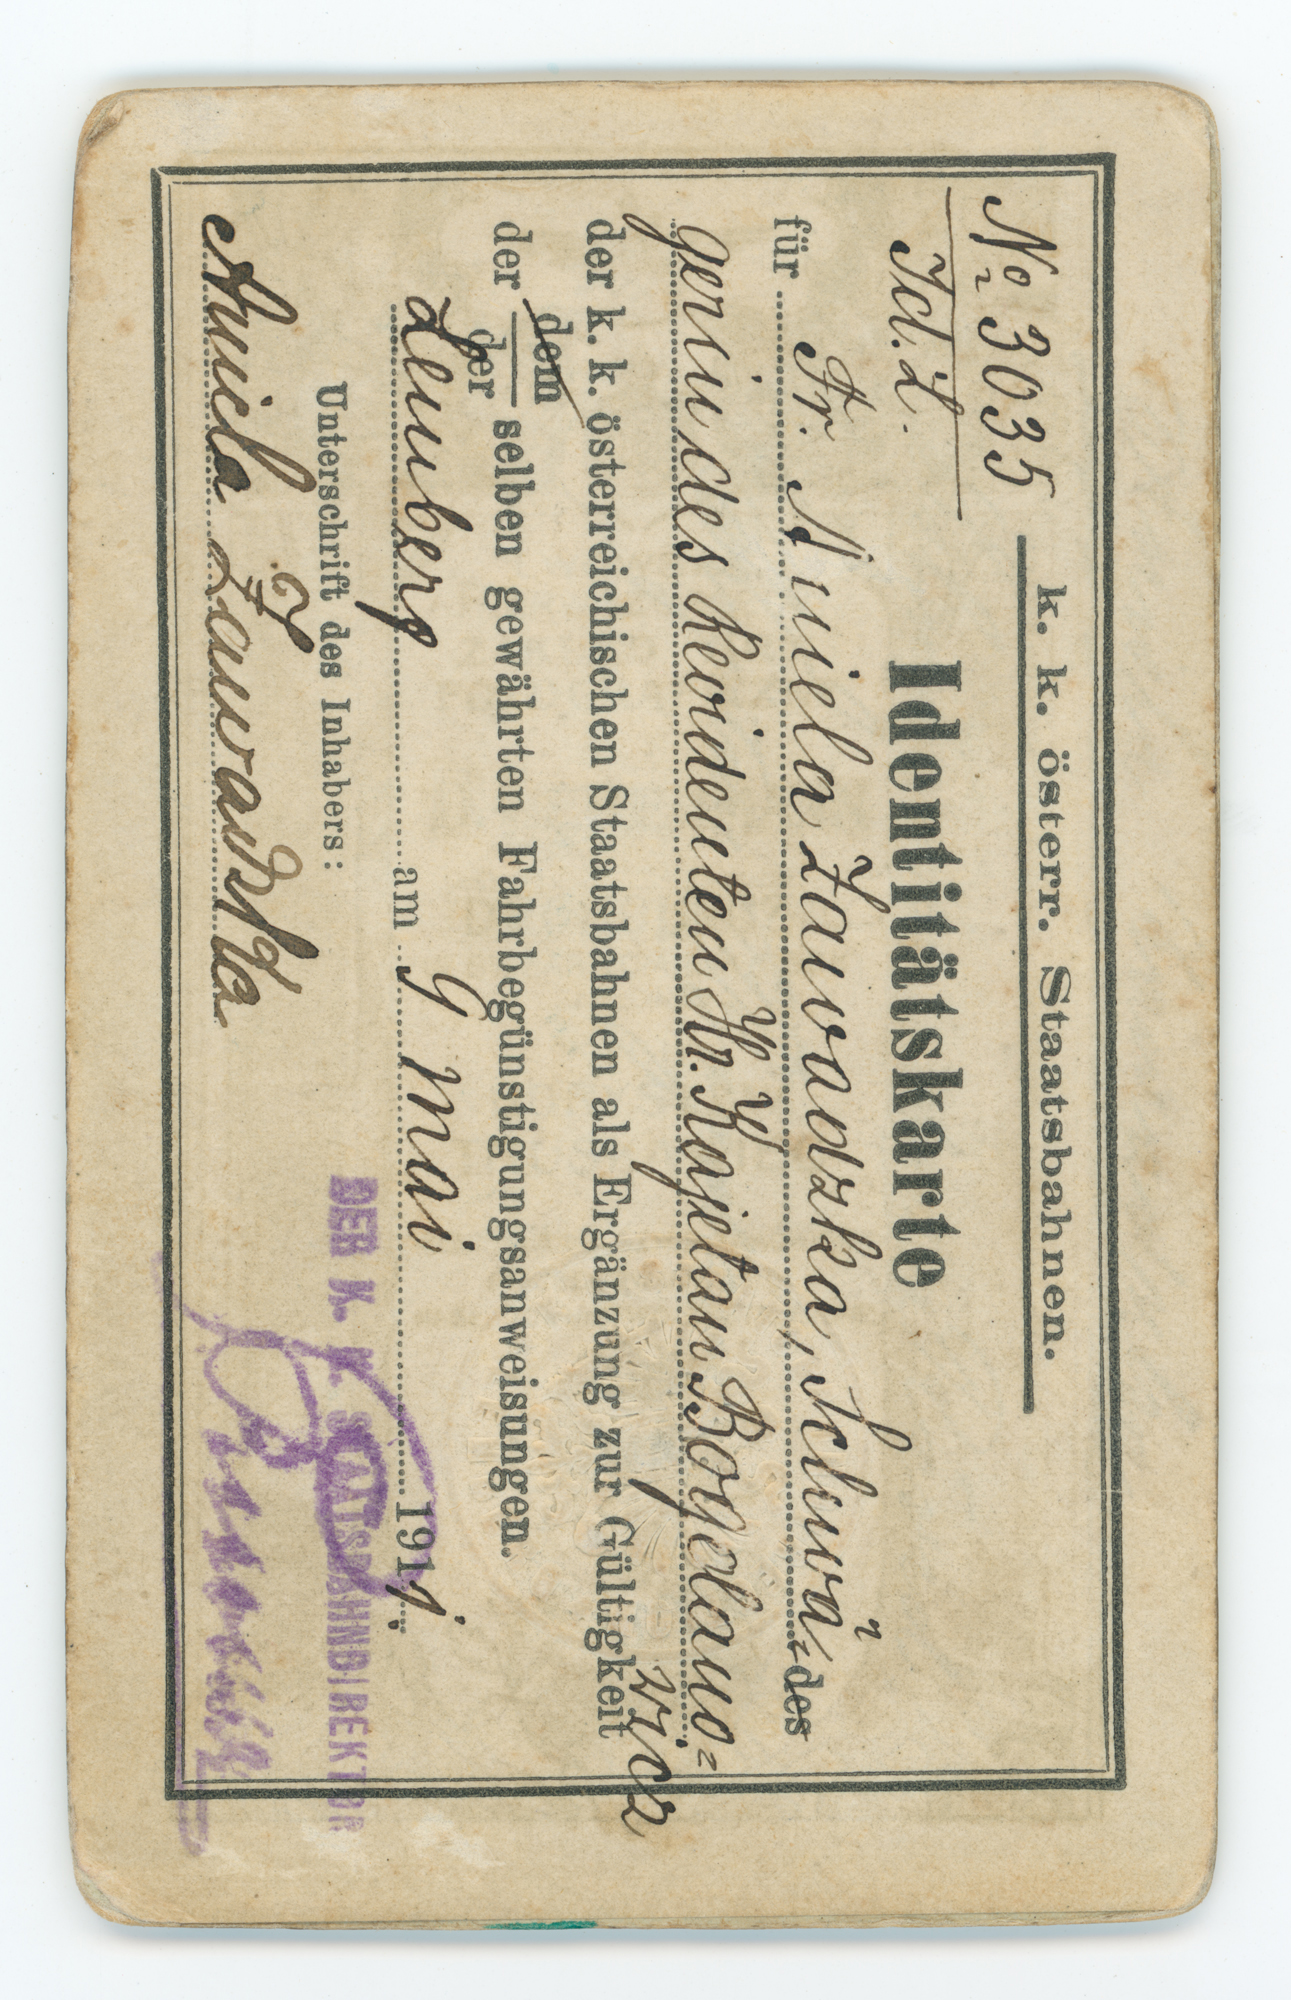 k. k. österr. Staatsbahnen.
№ 3035
Id. Z.
Identitätskarte
für Fr. Aniela Zawadzka, Schwä= des
gerin des Revidenten Hr. Kajetan Bogdano=
wicz
der k. k. österreichischen Staatsbahnen als Ergänzung zur Gültigkeit
dem
der selben gewährten Fahrbegünstigungsanweisungen.
der
Lemberg am 9 Mai 1911.
Unterschrift des Inhabers:
DER K. K. STAATSBAHNDIREKTOR
Aniela Zawadzka